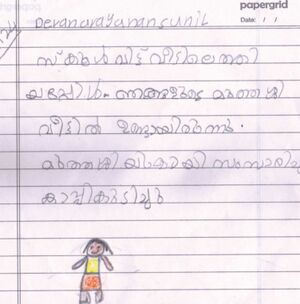 papergrid
Date: / /
Devanarayanansunil
സ്കൂൾ വിട്ട് വീട്ടിലെത്തി
യപ്പോൾ ഞങ്ങളുടെ മുത്തശ്ശി
വീട്ടിൽ ഉണ്ടായിരുന്നു.
മുത്തശ്ശിയുമായി സംസാരിച്ചു
കാപ്പികുടിച്ചു